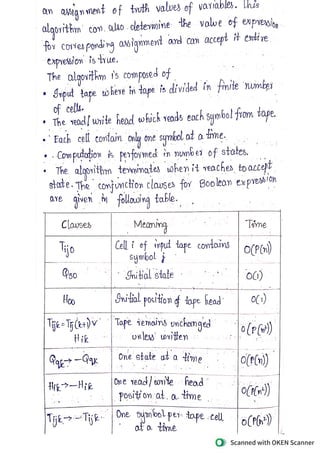 an assignment of truth values of variables. This
algorithm can also determine the value of expression
for corresponding assignment and can accept it entire
expression is true.
The algorithm is composed of
• Input tape where in tape is divided in finite number
of cells.
• The read/write head which reads each symbol from tape.
• Each cell contain only one symbol at a time.
• Computation is performed in number of states.
• The algorithm terminates when it reaches to accept
state. The conjunction clauses for Boolean expression
are given in following table.
Clauses Meaning Time
Tijo Cell i of input tape contains symbol j O(P(n))
Qso Initial state O(1)
Hoo Initial position of tape head O(1)
Tijk = Tij(k+1) v Hik Tape remains unchanged unless written O(P(n²))
Qqk → -Qqk One state at a time O(P(n))
Hik → -Hik One read/write head position at a time O(P(n²))
Tijk → -Tijk One symbol per tape cell at a time O(P(n²))
Scanned with OKEN Scanner